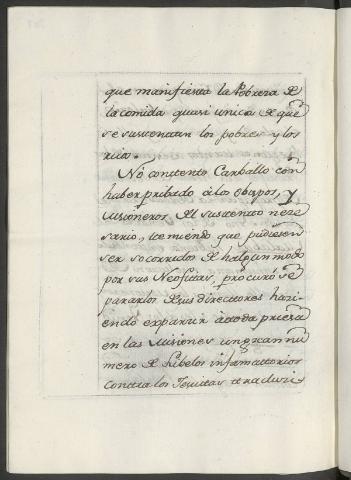 que manifiesta la Pobreza de
la comida quasi unica de que
se sustentan los pobres y los
rūa.
No contento Carballo con
haber pribado à los Obispos, y
Misioneros del sustento nece
sario, temiendo que pudiesen
ser socorridos de halgun modo
por sus Neofitas, procuró se
pararlos de sus Directores hazi
endo esparzir à toda priesa
en las Misiones un gran nu
mero de Libelos infamatorios
contra los Jesuitas traduzi